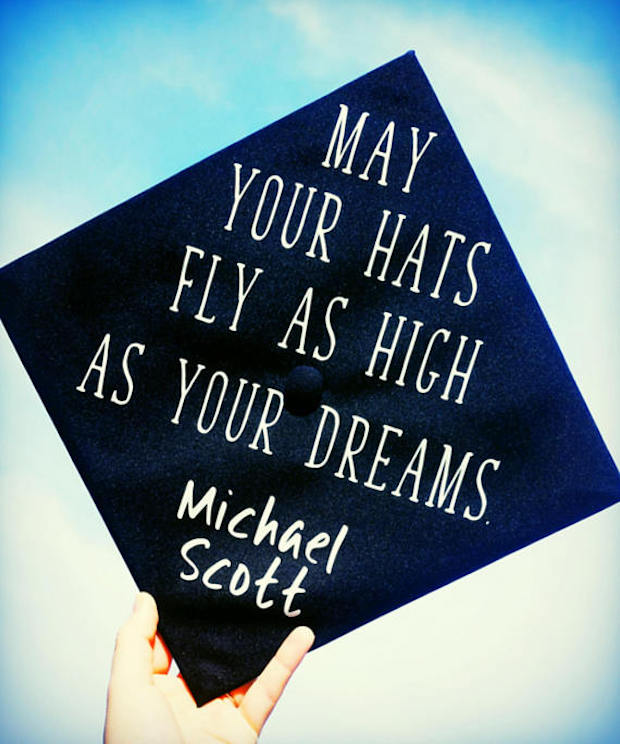 MAY
YOUR HATS
FLY AS HIGH
AS YOUR DREAMS.
Michael
Scott